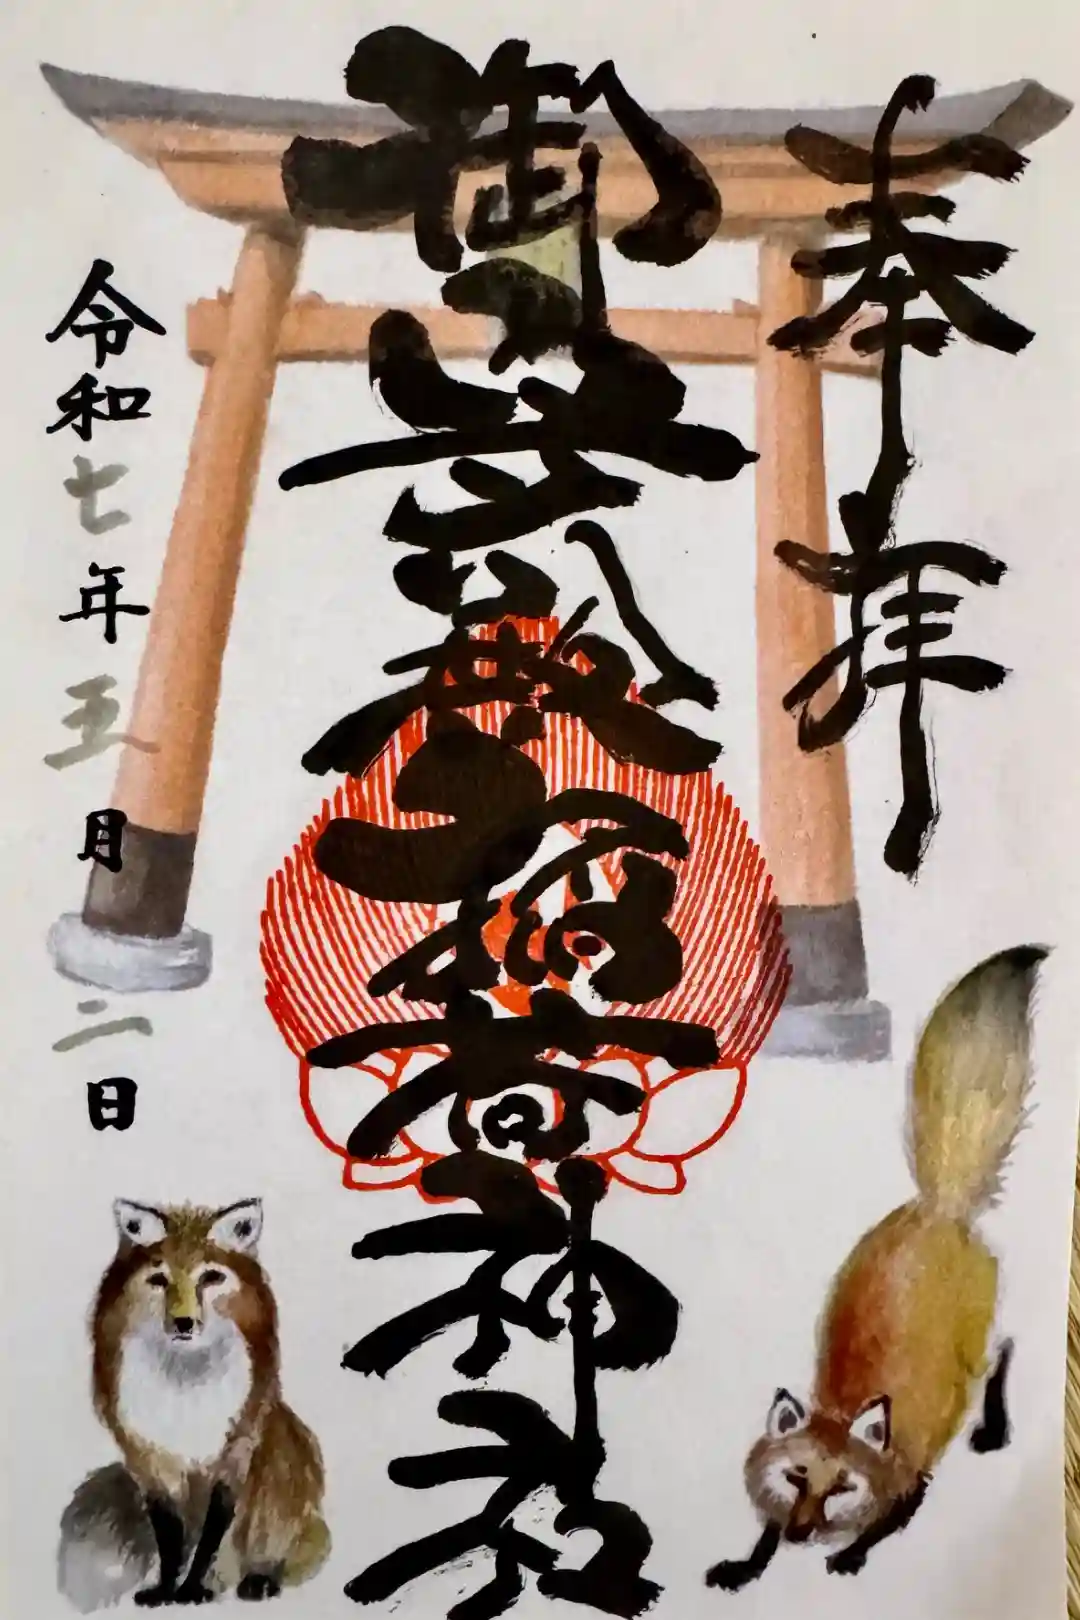 奉拝
御 稲荷神社
令和七年五月二日